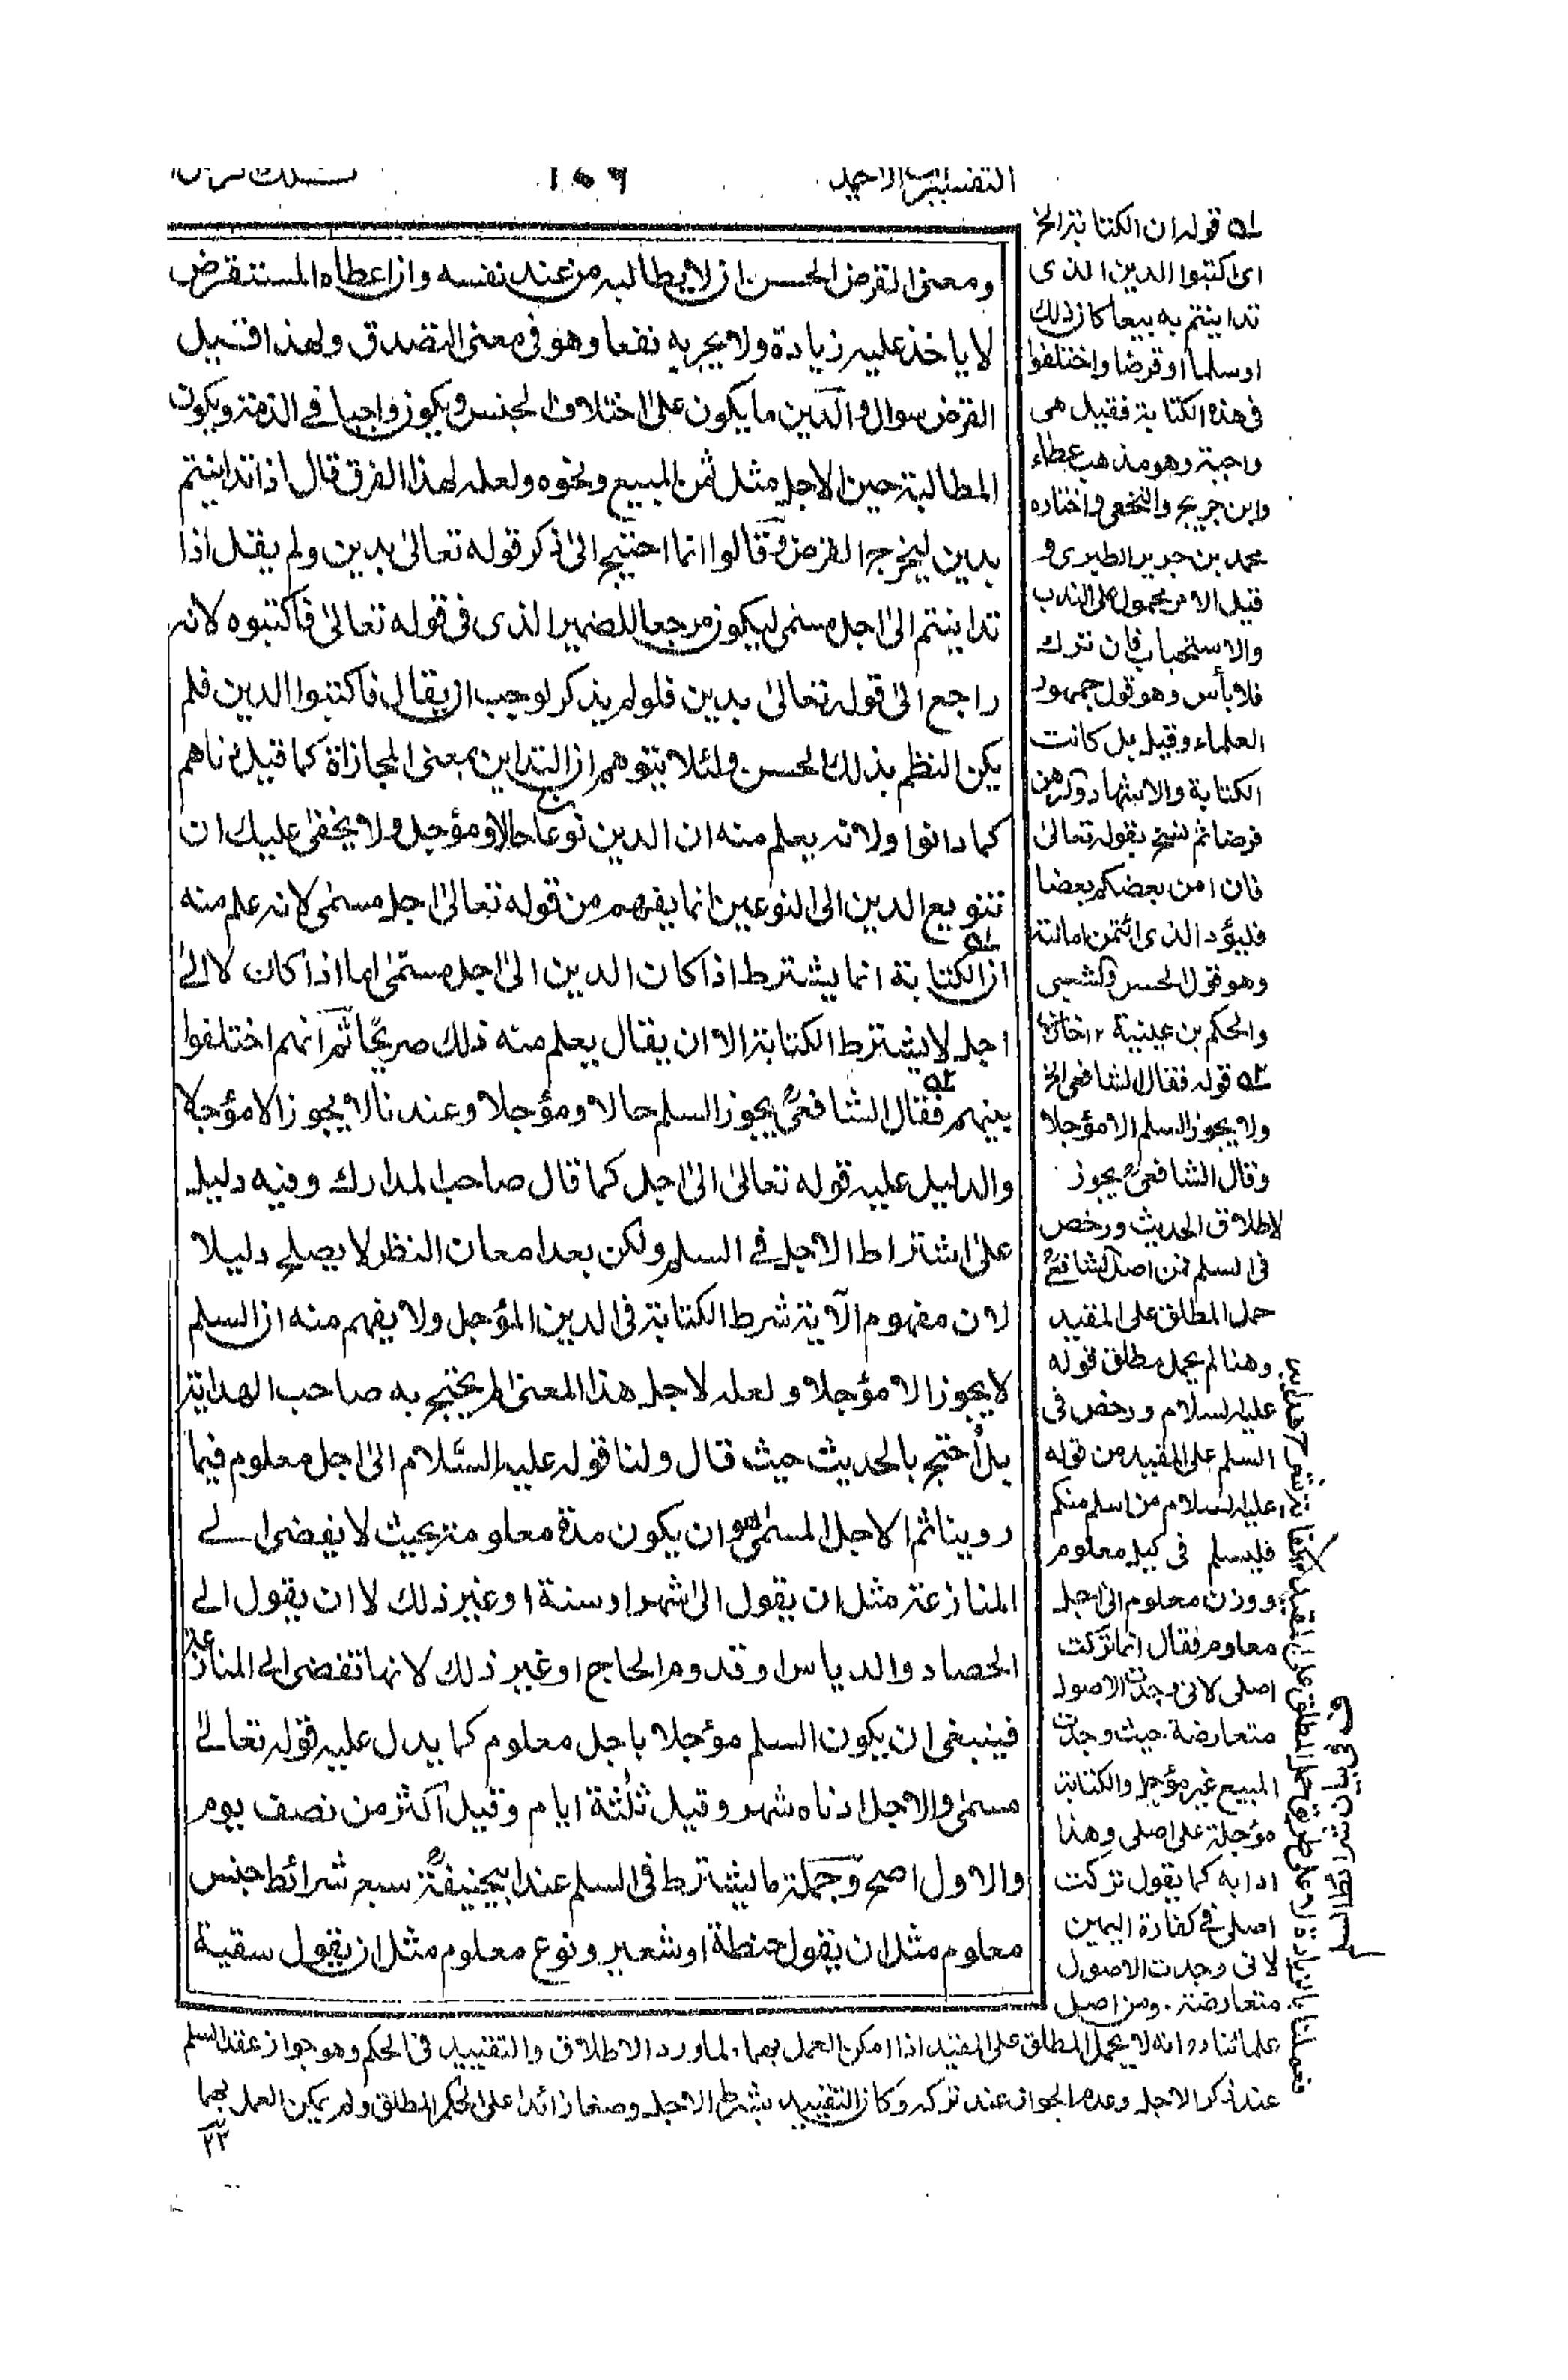 التفسيرات الاحمدية
ومعنى القرض الحسن ان لا يطالبه من عند نفسه وان اعطاه المستقرض
لا ياخذ عليه زيادة ولا يجر به نفعا وهو فى معنى التصدق ولهذا قيل
القرض سوال والدين ما يكون على اختلاف الجنس ويكون واجبا في الذمة ويكون
المطالبة حين الاجل مثل ثمن المبيع ونحوه ولعله لهذا الفرق قال اذا تداينتم
بدين ليخرج القرض وقالوا انما احتيج الى ذكر قوله تعالى بدين ولم يقل اذا
تداينتم الى اجل مسمى ليكون مرجعا للضمير الذى فى قوله تعالى فاكتبوه لانه
راجع الى قوله تعالى بدين فلو لم يذكر لوجب ان يقال فاكتبوا الدين فلم
يكن النظم بذلك الحسن ولئلا يتوهم ان التداين بمعنى المجازاة كما قيل دناهم
كما دانوا ولانه يعلم منه ان الدين نوعان حالا ومؤجل ولا يخفى عليك ان
تنويع الدين الى النوعين انما يفهم من قوله تعالى اجل مسمى لانه علم منه
ان الكتابة انما يشترط اذا كان الدين الى اجل مسمى اما اذا كان لا الى
اجل لا يشترط الكتابة الا ان يقال يعلم منه ذلك صريحا ثم انهم اختلفوا
بينهم فقال الشافعى يجوز السلم حالا ومؤجلا وعندنا لا يجوز الا مؤجلا
والدليل عليه قوله تعالى الى اجل كما قال صاحب المدارك وفيه دليل
على اشتراط الاجل في السلم ولكن بعد امعان النظر لا يصلح دليلا
لان مفهوم الآية شرط الكتابة فى الدين المؤجل ولا يفهم منه ان السلم
لا يجوز الا مؤجلا ولعله لاجل هذا المعنى لم يحتج به صاحب الهداية
بل احتج بالحديث حيث قال ولنا قوله عليه السلام الى اجل معلوم فيما
روينا ثم الاجل المسمى هو ان يكون مدة معلومة بحيث لا يفضى الى
المنازعة مثل ان يقول الى شهر او سنة او غير ذلك لا ان يقول الى
الحصاد والدياس او قدوم الحاج او غير ذلك لانها تفضى الى المنازعة
فينبغى ان يكون السلم مؤجلا باجل معلوم كما يدل عليه قوله تعالى
مسمى والاجل ادناه شهر وقيل ثلثة ايام وقيل اكثر من نصف يوم
والاول اصح وجملة ما يشترط فى السلم عند ابيحنيفة سبع شرائط جنس
معلوم مثل ان يقول حنطة او شعير ونوع معلوم مثل ان يقول سقية
له قوله ان الكتابة الخ
اى اكتبوا الدين الذى
تداينتم به بيعا كان ذلك
او سلما او قرضا واختلفوا
فى هذه الكتابة فقيل هى
واجبة وهو مذهب عطاء
وابن جريج والنخعى واختاره
محمد بن جرير الطبرى و
قيل الامر محمول على الندب
والاستحباب فان ترك
فلا بأس وهو قول جمهور
العلماء وقيل بل كانت
الكتابة والاشهاد والرهن
فرضا ثم نسخ بقوله تعالى
فان امن بعضكم بعضا
فليؤد الذى ائتمن امانته
وهو قول الحسن والشعبى
والحكم بن عيينة ١٢ خازن
٢ه قوله فقال الشافعى الخ
ولا يجوز السلم الا مؤجلا
وقال الشافعى يجوز
لاطلاق الحديث ورخص
فى السلم فمن اصل الشافعى
حمل المطلق على المقيد
وهنا لم يحمل مطلق قوله
عليه السلام ورخص فى
السلم على المقيد من قوله
عليه السلام من اسلم منكم
فليسلم فى كيل معلوم
ووزن معلوم الى اجل
معلوم فقال انما تركت
اصلى لانى وجدت الاصول
متعارضة حيث وجدت
المبيع غير مؤجل والكتابة
مؤجلة على اصلى وهذا
ادابه كما يقول تركت
اصلى في كفارة اليمين
لانى وجدت الاصول
متعارضة ومن اصل
علمائنا انه لا يحمل المطلق على المقيد اذا امكن العمل بهما ولما ورد الاطلاق والتقييد فى الحكم وهو جواز عقد السلم
عند ذكر الاجل وعدم الجواز عند تركه وكان التقييد بشرط الاجل وصفا زائدا على الحكم المطلق ولم يمكن العمل بهما
فعملنا بالزيادة لا على طريق حمل المطلق على المقيد
ف فى بيان شرائط السلم
٢٣